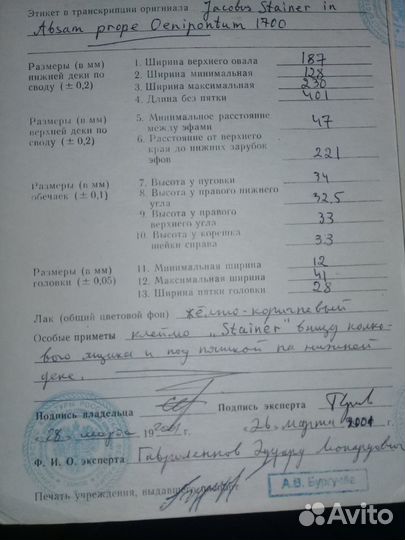 Этикет в транскрипции оригинала Jacobus Stainer in
Absam prope Oenipontum 1700
Размеры (в мм) нижней деки по своду (± 0,2)
1. Ширина верхнего овала 187
2. Ширина минимальная 128
3. Ширина максимальная 230
4. Длина без пятки 401
Размеры (в мм) верхней деки по своду (± 0,2)
5. Минимальное расстояние между эфами 47
6. Расстояние от верхнего края до нижних зарубок эфов 221
Размеры (в мм) обечаек (± 0,1)
7. Высота у пуговки 34
8. Высота у правого нижнего угла 32,5
9. Высота у правого верхнего угла 33
10. Высота у корешка шейки справа 33
Размеры (в мм) головки (± 0,05)
11. Минимальная ширина 12
12. Максимальная ширина 41
13. Ширина пятки головки 28
Лак (общий цветовой фон) жёлто-коричневый
Особые приметы клеймо „Stainer" внизу колко-
вого ящика и под пяткой на нижней
деке.
Подпись владельца Подпись эксперта
„28" марта 26 марта 2001 г.
Ф. И. О. эксперта Гавриленков Эдуард
Печать учреждения, выдавшего паспорт
А.В. Бургучёв
Avito